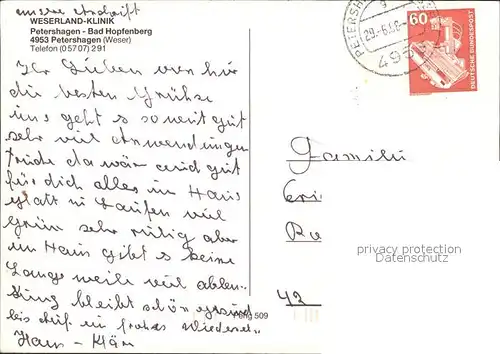 unsere Anschrift
WESERLAND-KLINIK
Petershagen - Bad Hopfenberg
4953 Petershagen (Weser)
Telefon (05707) 291
Ihr Lieben von hir
die besten Grühse
uns geht es soweit gut
sehr viel Anwendungen
Trude da wär auch gut
für dich alles im Haus
glatt in Laufen viel
Grün sehr ruhig aber
im Haus gibt es keine
Langeweile viel ablen-
kung bleibt schön gesund
bis auf ein frohes wiederse..
Hans - Klär
PETERSH
29.-9.83-
60
DEUTSCHE BUNDESPOST
Familie
Eri
Ra
42
privacy protection
AnsichtskartenVersand.com
ing 509